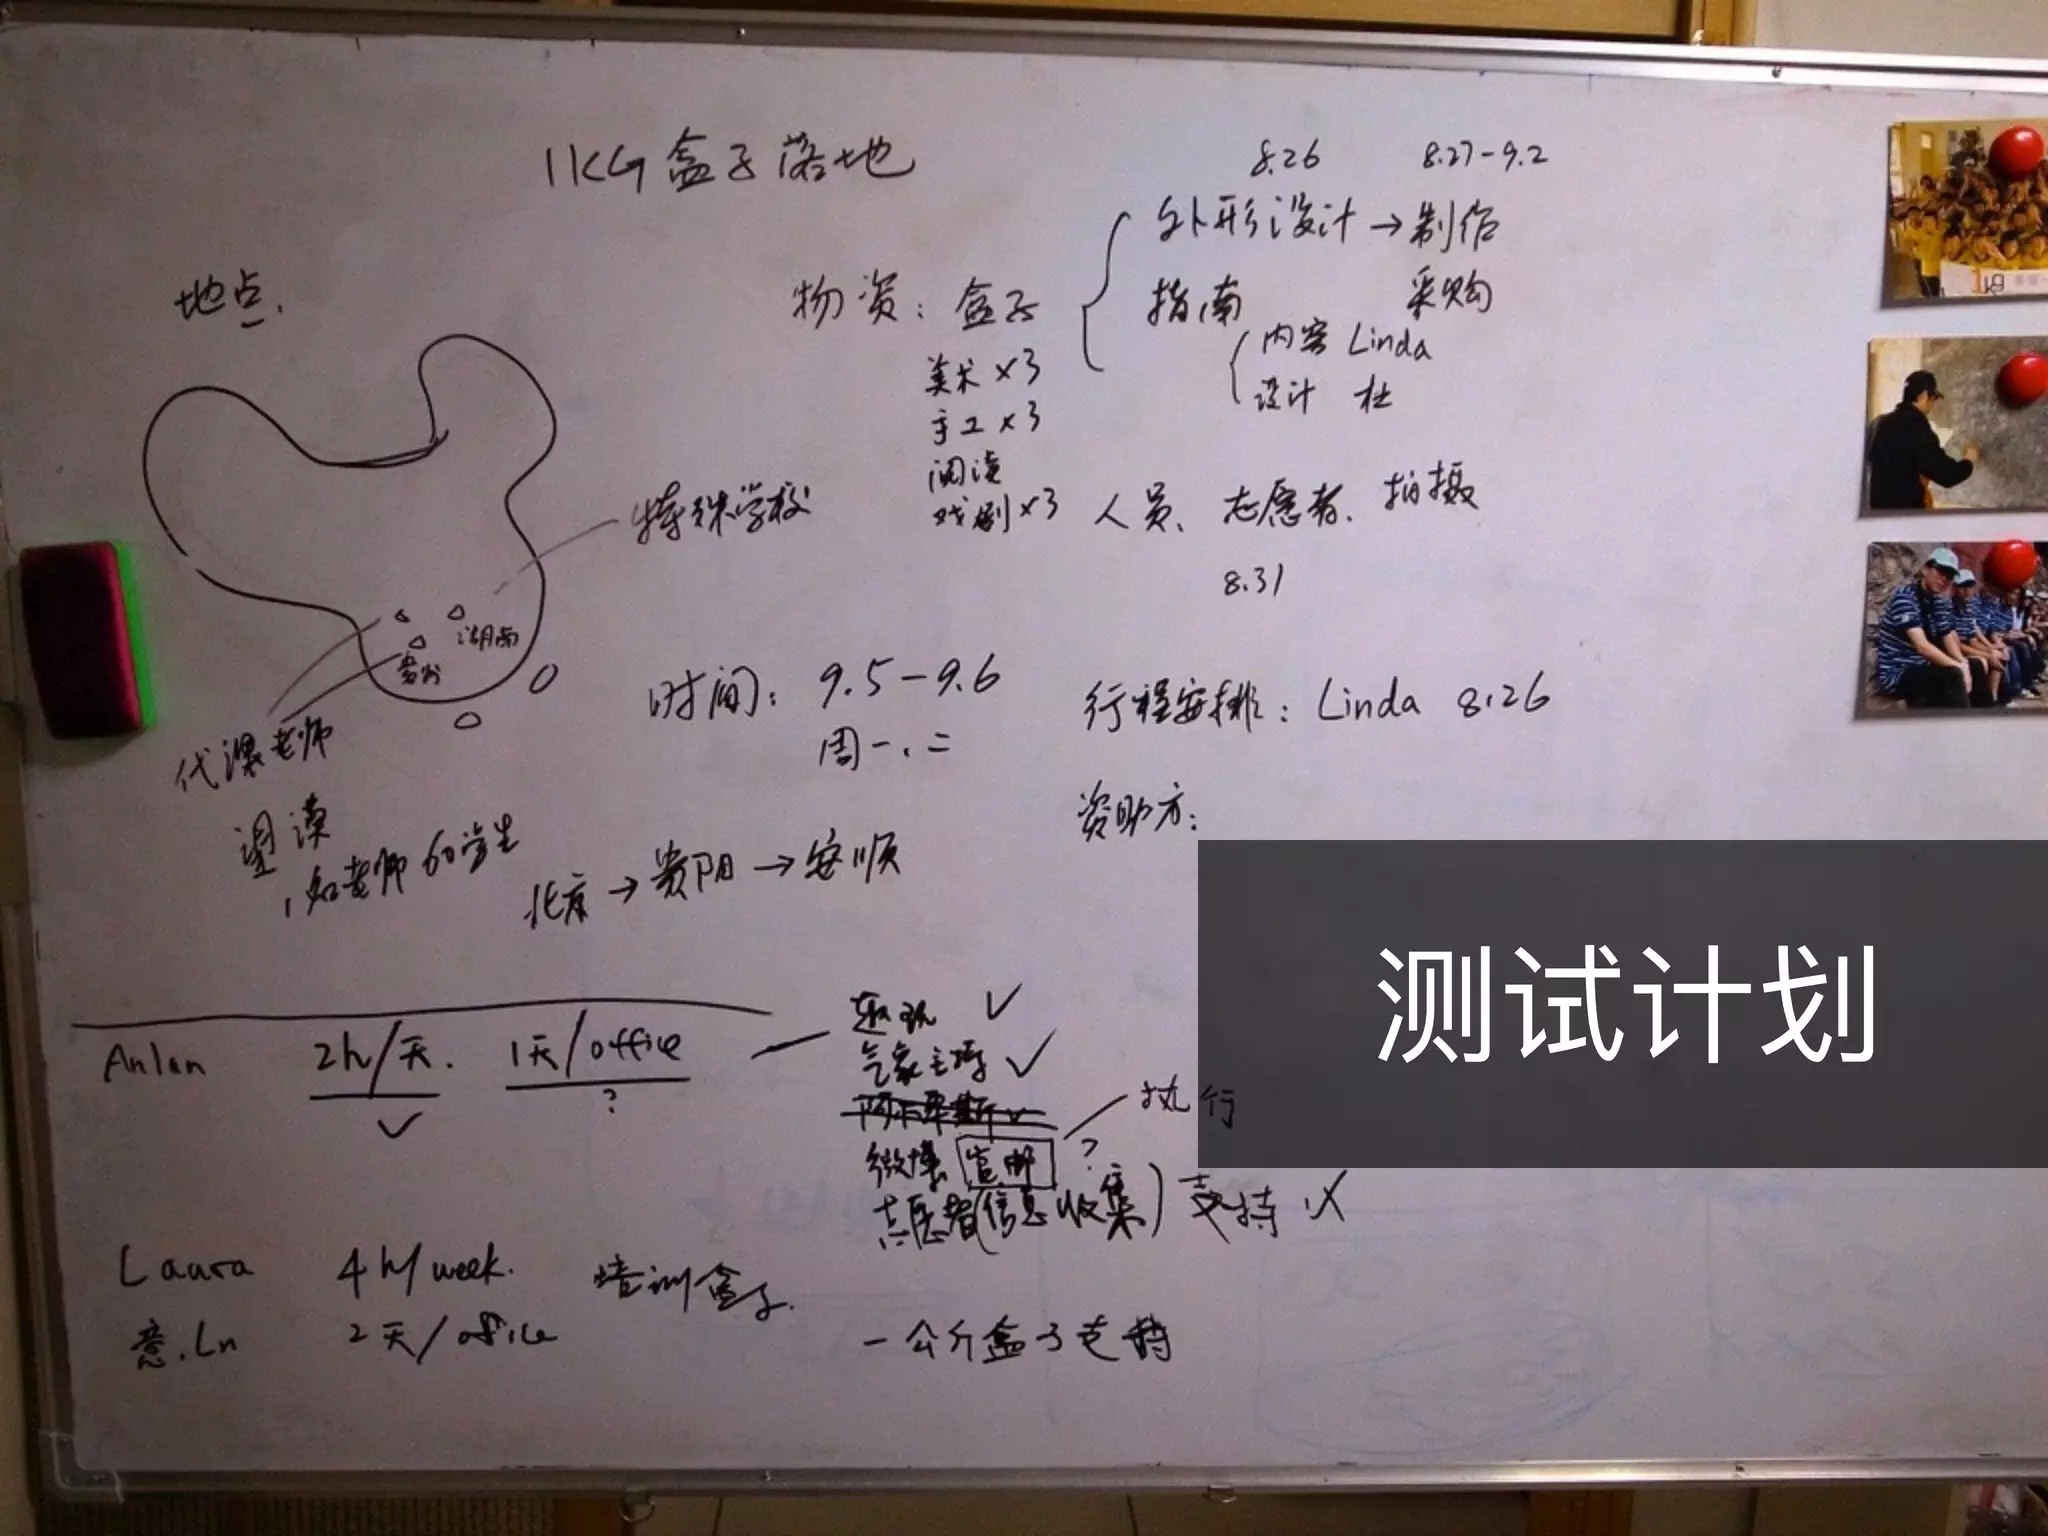 1KG盒子落地
地点.
特殊学校
湖南
贵州
代课老师
望谟
1知老师 60学生
物资: 盒子
美术×3
手工×3
阅读
戏剧×3
8.26 8.27-9.2
外形设计→制作
指南 采购
内容 Linda
设计 杜
人员、志愿者、拍摄
8.31
时间: 9.5-9.6
周一、二
行程安排: Linda 8.26
资助方:
北京→贵阳→安顺
测试计划
Anlan 2h/天. 1天/office
?
气象主持
微博 官邮 ? 执行
志愿者(信息收集) 支持
Laura 4h/week. 培训盒子.
意.Ln 2天/office
一公斤盒子支持
1kg